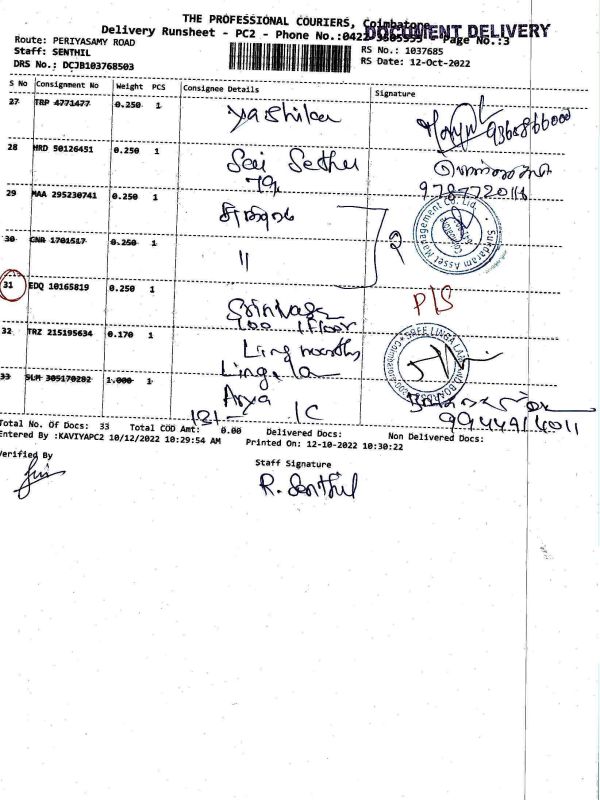 THE PROFESSIONAL COURIERS, Coimbatore
Delivery Runsheet - PC2 - Phone No.:0422 Page No.:3
DOCUMENT DELIVERY
Route: PERIYASAMY ROAD
RS No.: 1037685
Staff: SENTHIL
RS Date: 12-Oct-2022
DRS No.: DCJB103768503
S No Consignment No Weight PCS Consignee Details Signature
27 TRP 4771477 0.250 1 Yashika
28 HRD 50126451 0.250 1 Sai Sethu
79,
9787720116
29 MAA 295230741 0.250 1
Sundaram Asset Management Co. Ltd
30 GNR 1701517 0.250 1 11
31 EDQ 10165819 0.250 1 P/S
100 1 Floor
32 TRZ 215195634 0.170 1
33 SLM 305170282 1.000 1 Arya
131- 1C 9944914011
Total No. Of Docs: 33 Total COD Amt: 0.00 Delivered Docs: Non Delivered Docs:
Entered By :KAVIYAPC2 10/12/2022 10:29:54 AM Printed On: 12-10-2022 10:30:22
Verified By
Staff Signature
R. Senthil